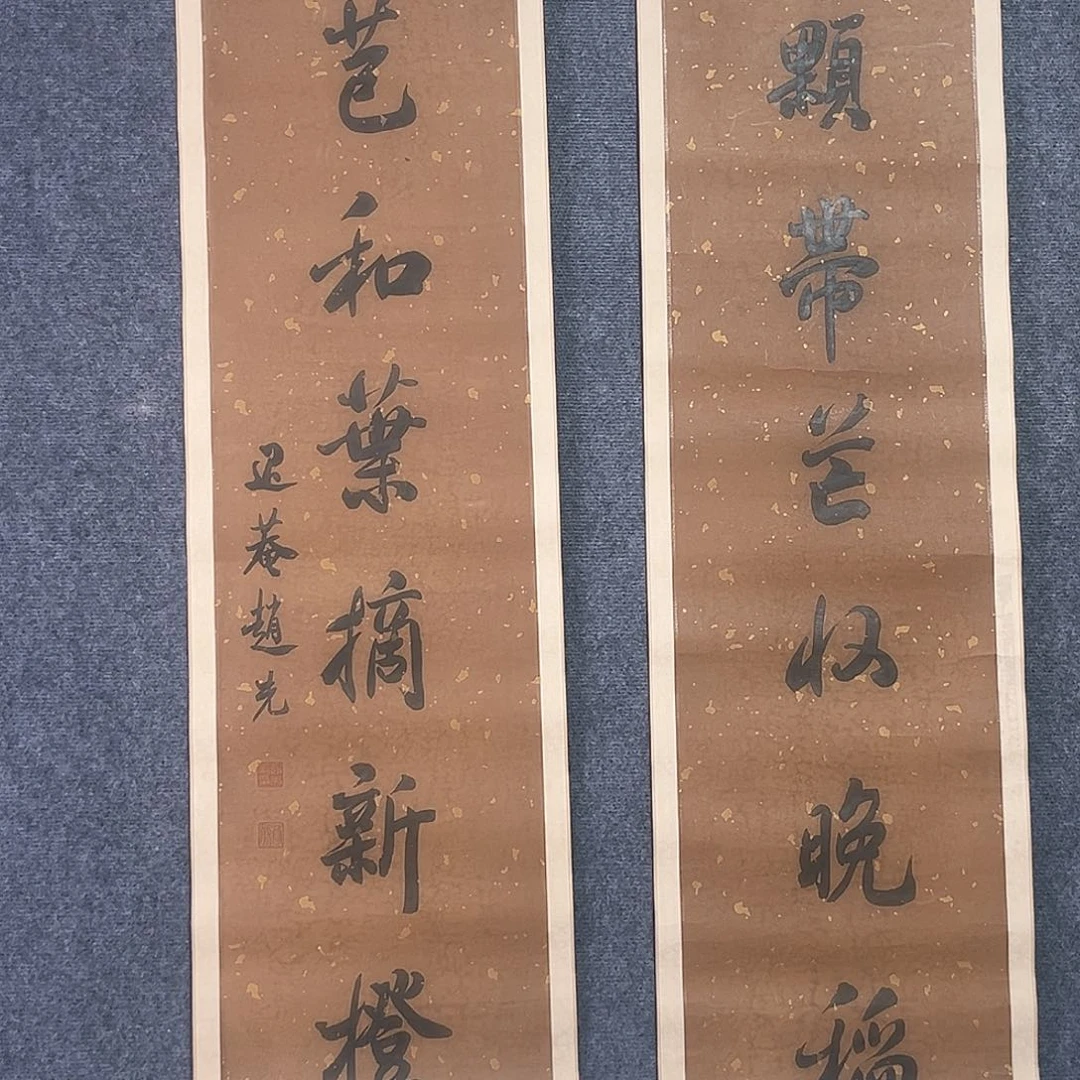 顆帶芒收晚稻
苞和葉摘新橙
退菴趙光